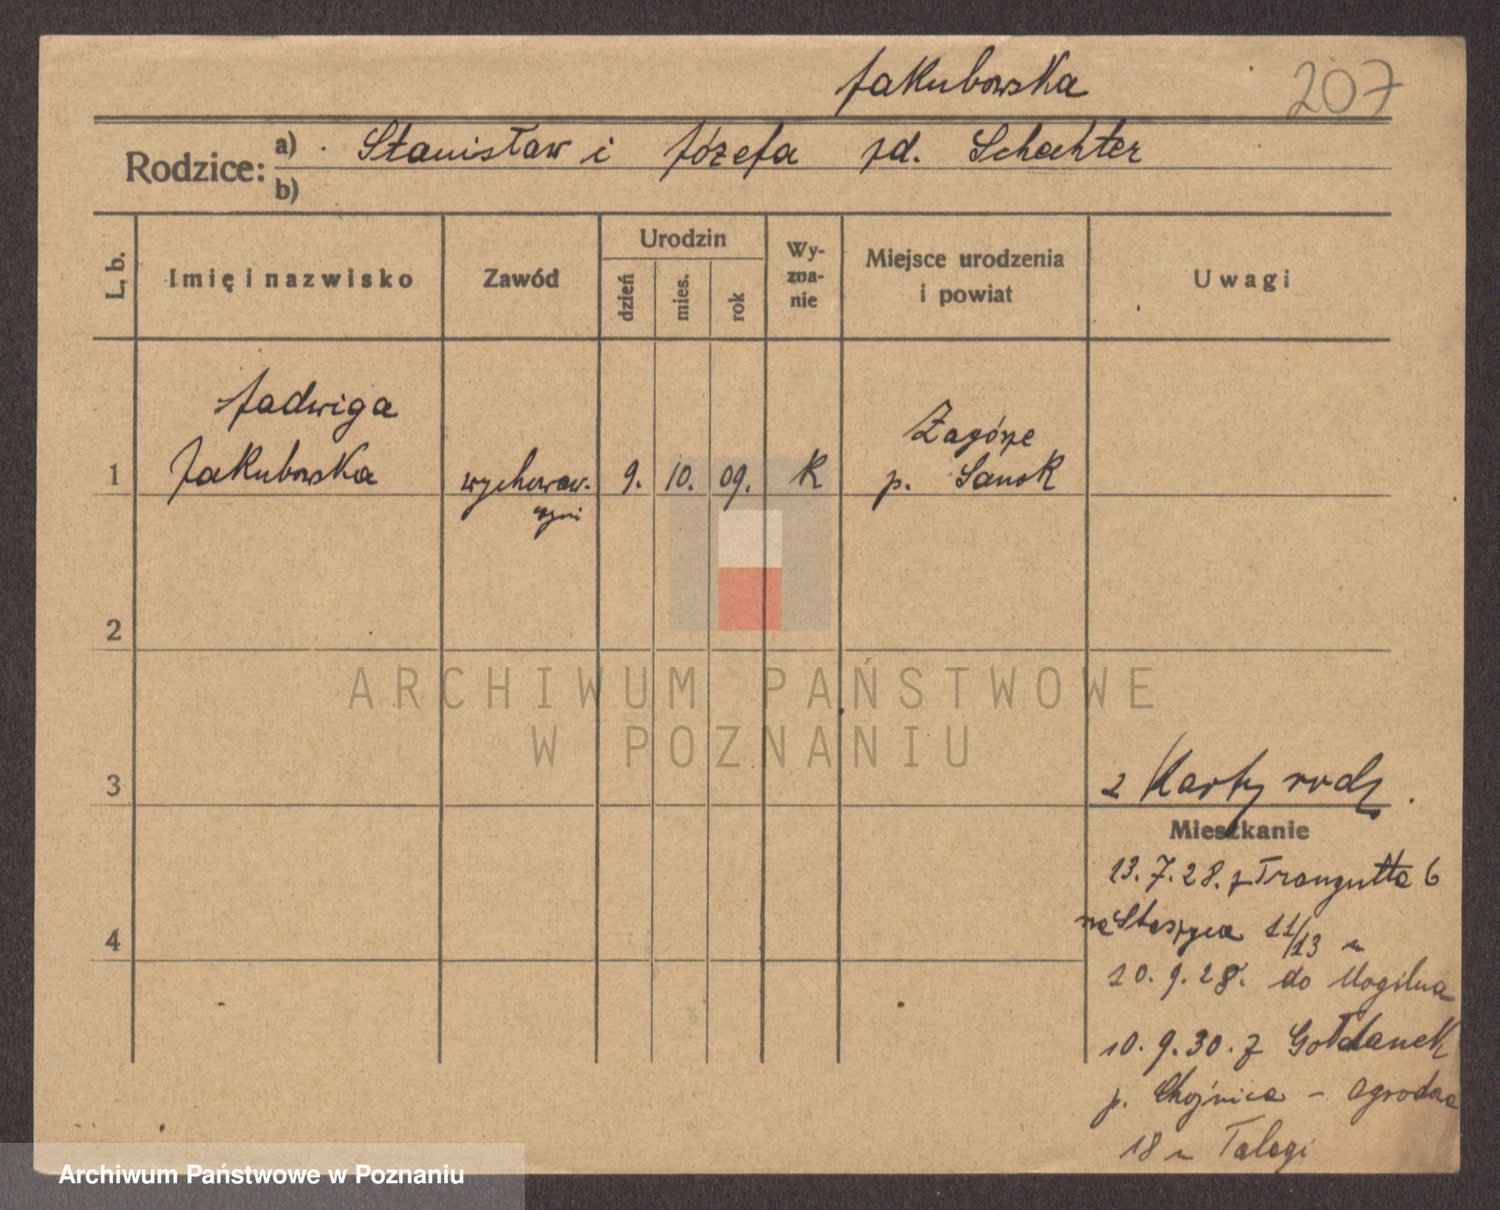 Jakubowska
207
Rodzice: a) Stanisław i Józefa zd. Schechter
b)
L. b.
Imię i nazwisko
Zawód
Urodzin
dzień
mies.
rok
Wy-
zna-
nie
Miejsce urodzenia
i powiat
Uwagi
Jadwiga
1 Jakubowska
wychowaw-
czyni
9. 10. 09.
K
Zagórze
p. Sanok
2
ARCHIWUM PAŃSTWOWE
W POZNANIU
3
2 Karty rodz.
Mieszkanie
13.7.28. z Traugutta 6
na Staszyca 11/13 u
4
10.9.28. do Mogilna
10.9.30. z
p. Chojnica - Ogrodna
18 u
Archiwum Państwowe w Poznaniu